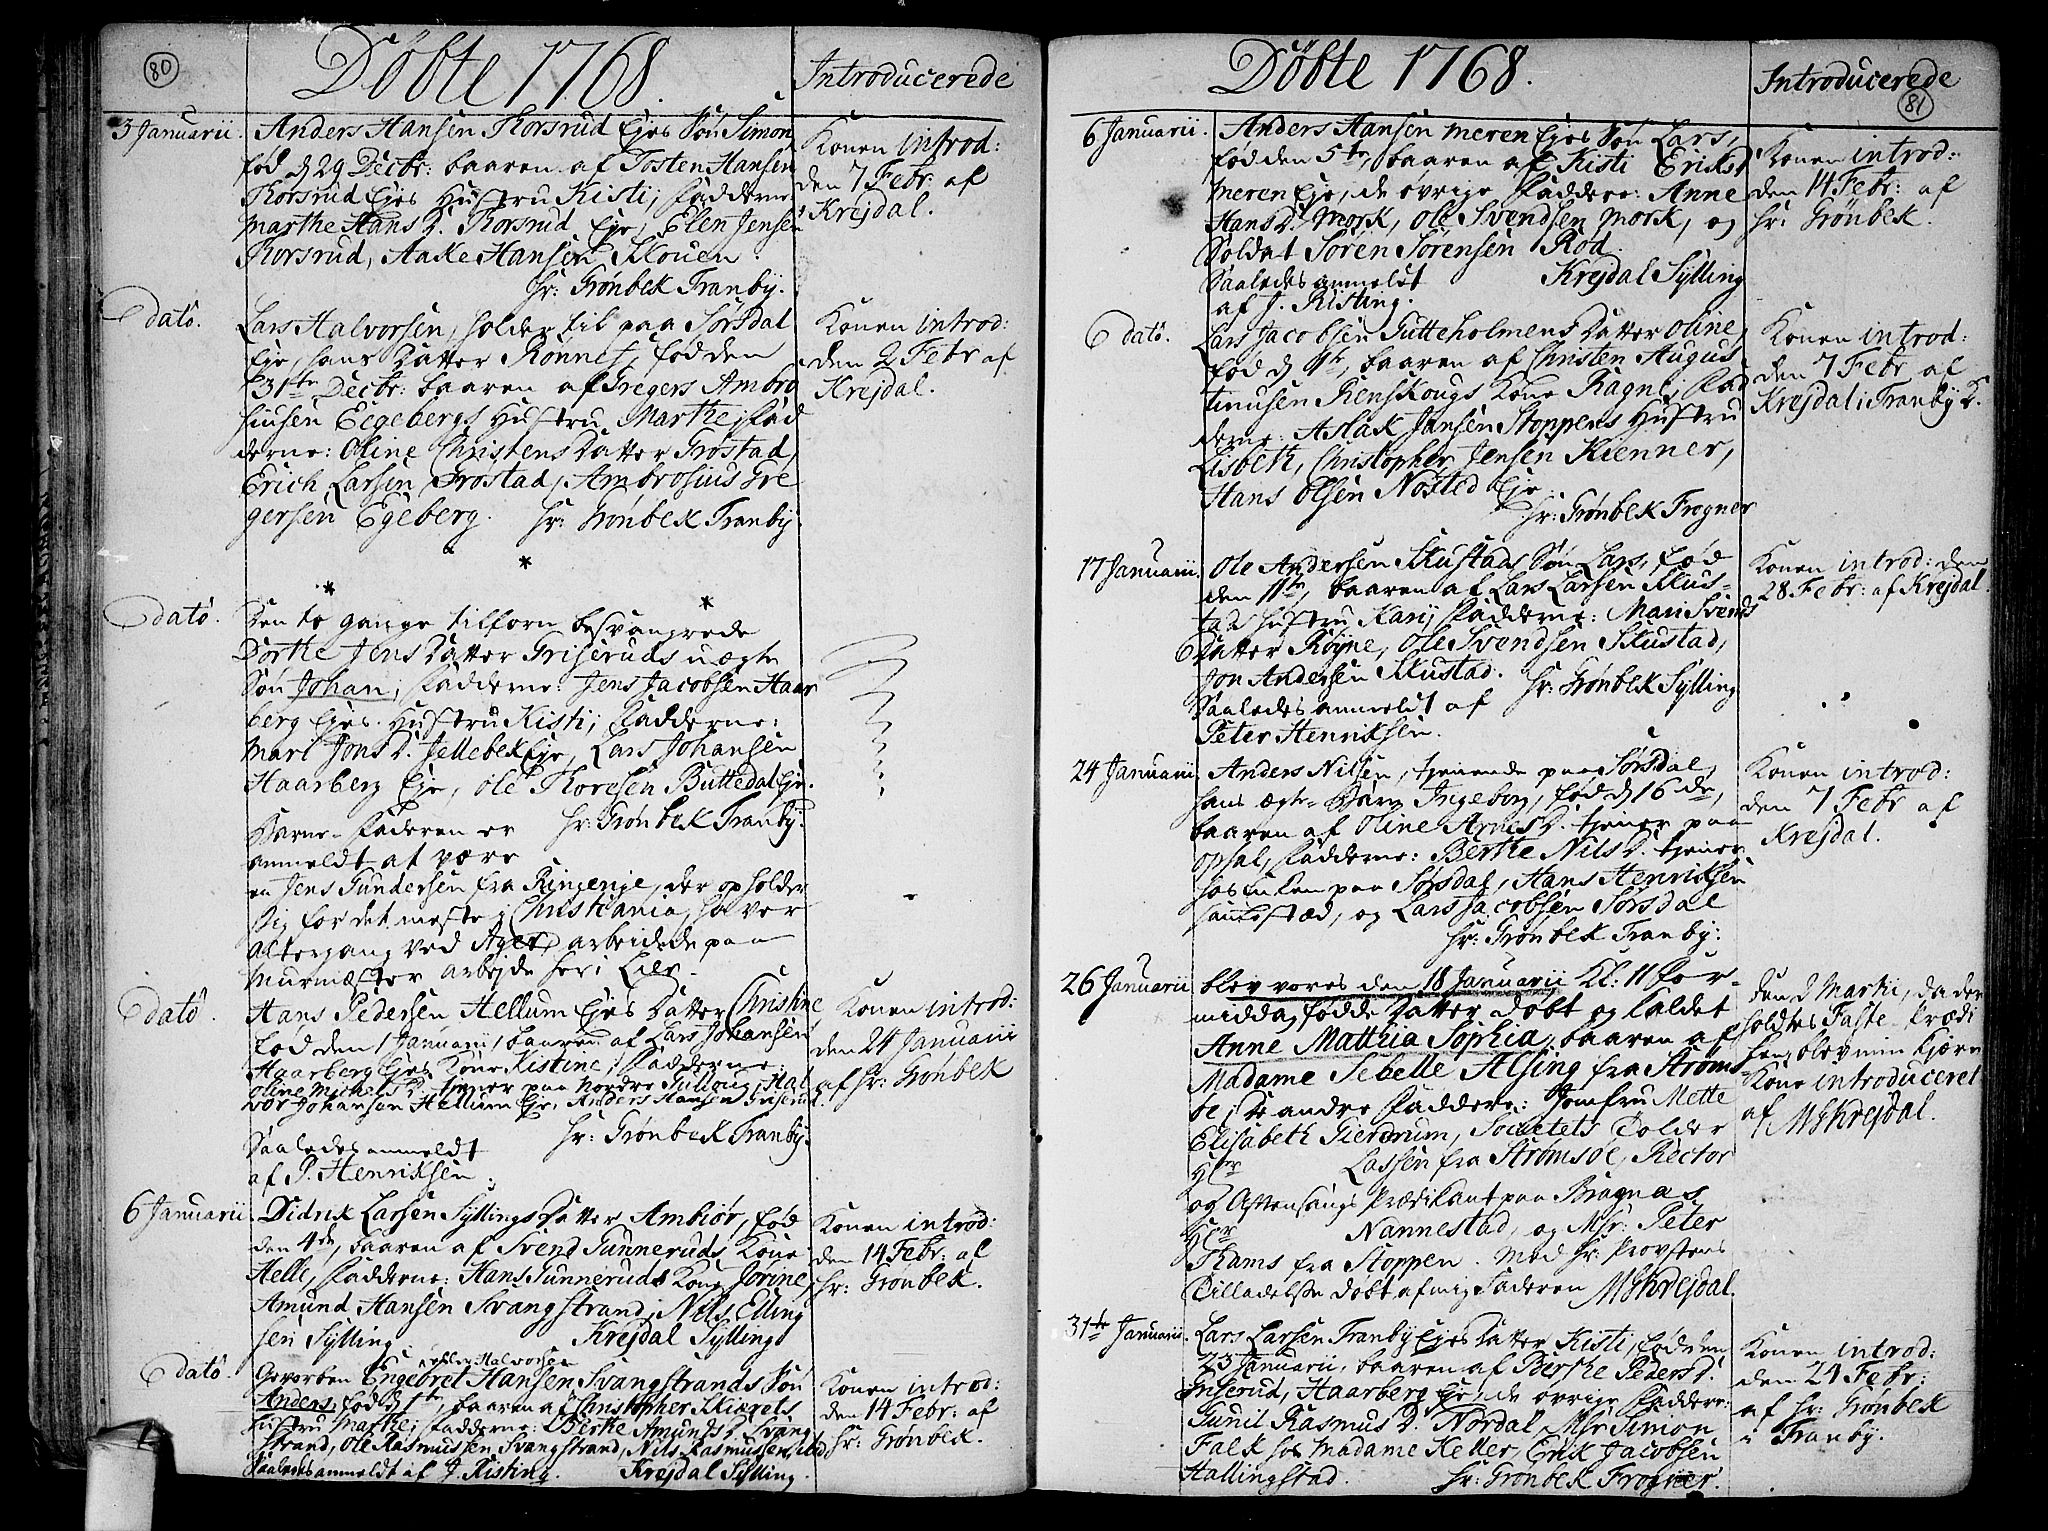 80
Döbte 1768.
Introducerede
3 Januarii.
Anders Hansen Korsrud Ejes Søn Simon
fød d 29 Decbr: baaren af Tosten Hansen
Korsrud Ejes Hustru Kisti, Fadderne
Marthe Hans D. Korsrud Eje, Elen Jensen
Korsrud, Aake Hansen Klouen.
Hr: Grønbek Tranby.
Konen introd:
den 7 Febr: af
Krejdal.
dato.
Lars Halvorsen, holder til paa Sørsdal
Eje, hans Datter Rønnef, fød den
31te Decbr: baaren af Gregers Ambro
siusen Eegebergs Hustru Marthe, Fad
derne: Oline Christens Datter Grøstad,
Erich Larsen Grøstad, Ambrosius Gre
gersen Egeberg. Hr: Grønbek Tranby.
Konen introd:
den 2 Febr af
Krejdal.
dato.
Den to gange tilforn besvangrede
Dorthe Jens Datter Griseruds uægte
Søn Johan, Fadderne: Jens Jacobsen Haar
berg Ejes Hustru Kisti, Fadderne:
Mari Jons D. Jellebek Eje, Lars Johansen
Haarberg Eje, Ole Thoresen Buttedal Eje.
Barne-Faderen er Hr: Grønbek Tranby.
anmeldt at være
en Jens Gundersen fra Ringerige, der opholder
sig for det meste i Christiania, haver
Altergang ved Ager, arbeidede paa
Murmester Arbejde her i Lier.
dato.
Hans Pedersen Hellum Ejes Datter Christine
fød den 1 Januarii, baaren af Lars Johansen
Haarberg Ejes Kone Kistine, Fadderne:
Oline Michels D. tjener paa Nordre Gulloug, Hal
vor Johansen Hellum Eje, Anders Hansen Griserud.
Hr: Grønbek Tranby.
Saaledes anmeldt
af P. Henriksen.
Konen introd:
den 24 Januarii
af Hr: Grønbek
6 Januarii
Didrik Larsen Syllings Datter Ambiør, fød
den 4de, baaren af Svend Gunneruds Kone
Helle, Fadderne: Hans Gunneruds Kone Jorine
Amund Hansen Svangstrand, Nils Elling
sen Sylling. Krejdal Sylling
Konen introd:
den 14 Febr: af
Hr: Grønbek.
dato.
eller Halvorsen
Gevorben Engebret Hansen Svangstrands Søn
Anders, fød d 1te, baaren af Christopher Skiærets
Hustru Marthe, Fadderne: Berthe Amunds D. Svang
strand, Ole Rasmussen Svangstrand, Nils Rasmussen
Saaledes anmeldt af J. Risting. Krejdal Sylling.
Konen introd:
den 14 Febr: af
Hr: Grønbek.
Döbte 1768.
Introducerede
81
6 Januarii.
Anders Hansen Meren Ejes Søn Lars,
fød den 5te, baaren af Kisti Eriks D
Meren Eje, de øvrige Faddere: Anne
Hans D. Mork, Ole Svendsen Mork, og
Soldat Søren Sørensen Rød.
Saaledes anmeldt Krejdal Sylling
af J. Risting.
Konen introd:
den 14 Febr: af
Hr: Grönbek.
dato.
Lars Jacobsen Gutteholmens Datter Oline,
fød d 1te, baaren af Christen Augus
tinusen Renskougs Kone Ragnil, Fad
derne: Aslak Jansen Stoppens Hustru
Lisbeth, Christopher Jensen Kienner,
Hans Olsen Nøsted Eje.
Hr: Grønbek Frogner
Konen introd:
den 7 Febr af
Krejdal i Tranby K.
17 Januarii.
Ole Andersen Skustads Søn Lars, fød
den 11te, baaren af Lars Larsen Skus-
tad Hustru Kari, Fadderne: Mari Svends
Datter Røyne, Ole Svendsen Skustad,
Jon Andersen Skustad. Hr: Grønbek Sylling
Saaledes anmeldt af
Peter Henriksen.
Konen introd: den
28 Febr: af Krejdal.
24 Januarii
Anders Nilsen, tjenende paa Sørsdal,
hans ægte-Barn Ingeborg, fød d 16de,
baaren af Oline Arnes D. tjener paa
Opsal, Fadderne: Berthe Nils D. tjener
hos Enken paa Sørsdal, Hans Henriksen
sammested, og Lars Jacobsen Sørsdal
Hr: Grønbek Tranby.
Konen introd:
den 7 Febr af
Krejdal.
26 Januarii
blev vores den 18 Januarii Kl: 11 For-
middag fødde Datter døbt og kaldet
Anne Matthia Sophia, baaren af
Madame Sebelle Alsing fra Strøms-
øe; De andre Faddere: Jomfru Mette
Elisabeth Gierdrum, Societets Tolder
Hr Lassen fra Strømsøe, Rector
og Aftensangs Prædikant paa Bragnæs
Hr Nannestad, og Msr: Peter
Thams fra Stoppen. Med Hr: Provstens
Tilladelse døbt af mig Faderen MGKrejdal.
Den d Martii, da der
holdtes Faste-Prædi
ken, blev min kjære
Kone introduceret
af MGKrejdal.
31te Januarii.
Lars Larsen Tranby Ejes Datter Kisti, fød den
23 Januarii, baaren af Berthe Peders D.
Griserud, Haarberg Eje, de øvrige Faddere:
Gunil Rasmus D. Nordal, Msr Simon
Falk hos Madame Keller, Erik Jacobsen
Hallingstad. Hr: Grønbek Frogner.
Konen introd:
den 24 Febr:
af Hr: Grønbek
i Tranby.